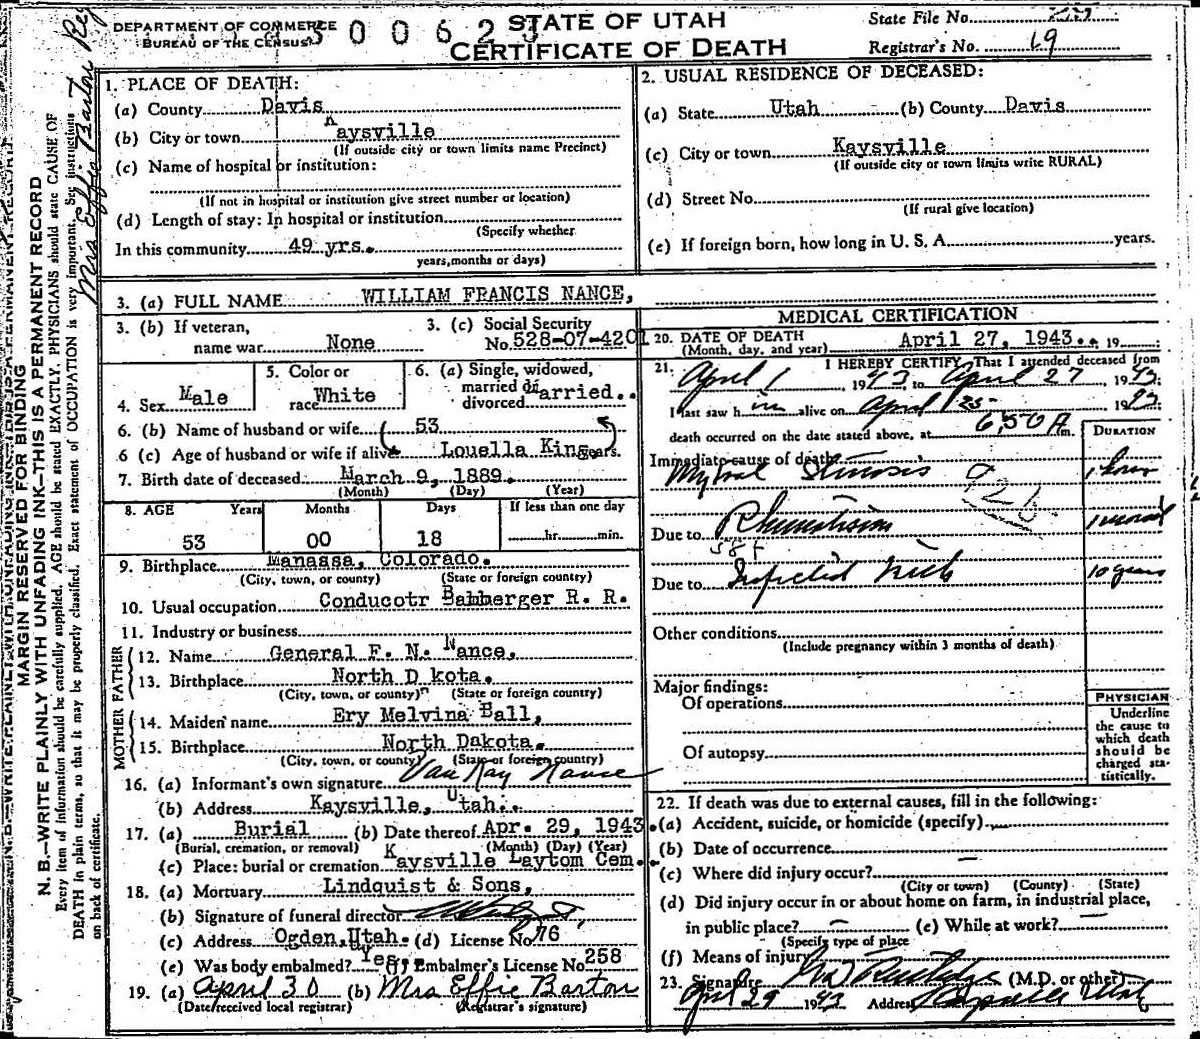 DEPARTMENT OF COMMERCE
BUREAU OF THE CENSUS
STATE OF UTAH
CERTIFICATE OF DEATH
State File No.
Registrar's No. 19
1. PLACE OF DEATH:
(a) County Davis
(b) City or town Kaysville
(If outside city or town limits name Precinct)
(c) Name of hospital or institution:
(If not in hospital or institution give street number or location)
(d) Length of stay: In hospital or institution
(Specify whether
In this community 49 yrs.
years, months or days)
2. USUAL RESIDENCE OF DECEASED:
(a) State Utah (b) County Davis
(c) City or town Kaysville
(If outside city or town limits write RURAL)
(d) Street No.
(If rural give location)
(e) If foreign born, how long in U. S. A. years.
3. (a) FULL NAME WILLIAM FRANCIS NANCE,
3. (b) If veteran, name war None
3. (c) Social Security No. 528-07-4201
4. Sex Male
5. Color or race White
6. (a) Single, widowed, married or divorced Married..
6. (b) Name of husband or wife 53
6 (c) Age of husband or wife if alive Louella King years.
7. Birth date of deceased March 9, 1889.
(Month) (Day) (Year)
8. AGE Years Months Days If less than one day
53 00 18 hr. min.
9. Birthplace Manassa, Colorado.
(City, town, or county) (State or foreign country)
10. Usual occupation Conducotr Bamberger R. R.
11. Industry or business
FATHER
12. Name General F. N. Nance,
13. Birthplace North D kota.
(City, town, or county) (State or foreign country)
MOTHER
14. Maiden name Ery Melvina Ball,
15. Birthplace North Dakota.
(City, town, or county) (State or foreign country)
16. (a) Informant's own signature Van Ray Nance
(b) Address Kaysville, Utah..
17. (a) Burial (b) Date thereof Apr. 29, 1943.
(Burial, cremation, or removal) (Month) (Day) (Year)
(c) Place: burial or cremation Kaysville Laytom Cem..
18. (a) Mortuary Lindquist & Sons,
(b) Signature of funeral director
(c) Address Ogden, Utah. (d) License No. 76
(e) Was body embalmed? Yes. (f) Embalmer's License No. 258
19. (a) April 30 (b) Mrs Effie Barton
(Date received local registrar) (Registrar's signature)
MEDICAL CERTIFICATION
20. DATE OF DEATH April 27, 1943.. 19
(Month, day, and year)
21. I HEREBY CERTIFY, That I attended deceased from
April 1 1943 to April 27 1943;
I last saw h im alive on April 25 1943
death occurred on the date stated above, at 6:50 A m.
DURATION
Immediate cause of death
Mytral Stenosis 1 hour
92b
Due to Rhumatisim 1 month
58f
Due to Infected teeth 10 years
Other conditions
(Include pregnancy within 3 months of death)
Major findings:
Of operations
Of autopsy
PHYSICIAN
Underline
the cause to
which death
should be
charged sta-
tistically.
22. If death was due to external causes, fill in the following:
(a) Accident, suicide, or homicide (specify)
(b) Date of occurrence
(c) Where did injury occur?
(City or town) (County) (State)
(d) Did injury occur in or about home on farm, in industrial place,
in public place? (e) While at work?
(Specify type of place
(f) Means of injury
23. Signature Rutledge (M.D. or other)
April 29 1943 Address Kaysville Utah
Mrs Effie Barton Reg
MARGIN RESERVED FOR BINDING
N. B.—WRITE PLAINLY WITH UNFADING INK—THIS IS A PERMANENT RECORD
Every item of information should be carefully supplied. AGE should be stated EXACTLY. PHYSICIANS should state CAUSE OF
DEATH in plain terms, so that it may be properly classified. Exact statement of OCCUPATION is very important. See instructions
on back of certificate.